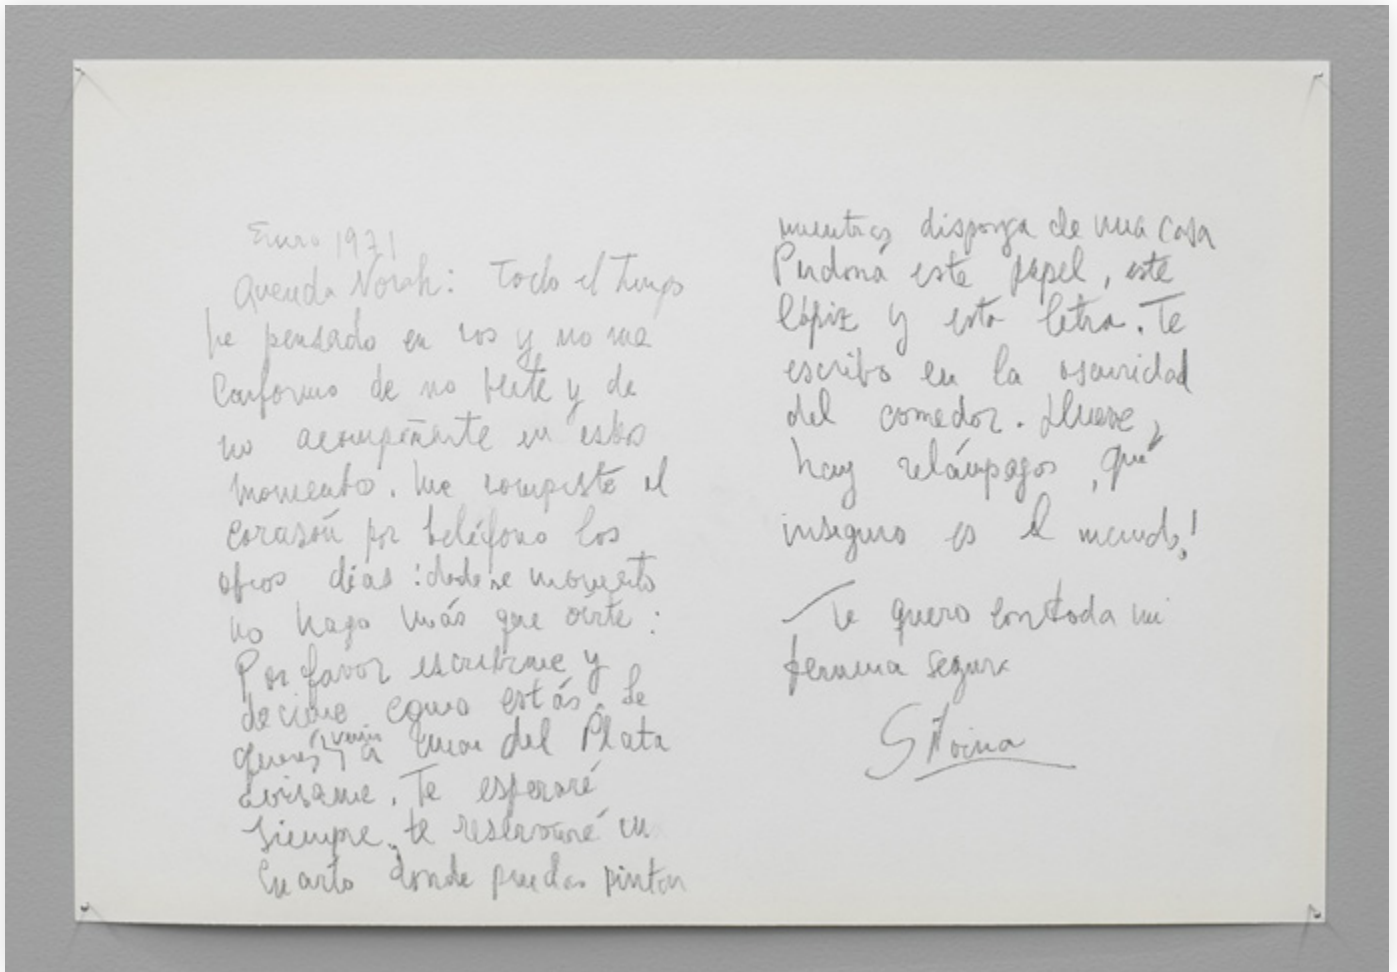 Enero 1971
Querida Norah: Todo el tiempo
he pensado en vos y no me
conformo de no verte y de
no acompañarte en estos
momentos. Me compristé el
corazón por teléfono los
otros días: desde ese momento
no hago más que oirte:
Por favor escribirme y
decirme como estás. Se
querés venir a Mar del Plata
avisame. Te esperaré
siempre, te reservaré un
cuarto donde puedas pintar
mientras disponga de una casa
Perdoná este papel, este
lápiz y esta letra. Te
escribo en la oscuridad
del comedor. Llueve,
hay relámpagos, qué
inseguro es el mundo!
Te quero con toda mi
ternura segura
Silvina